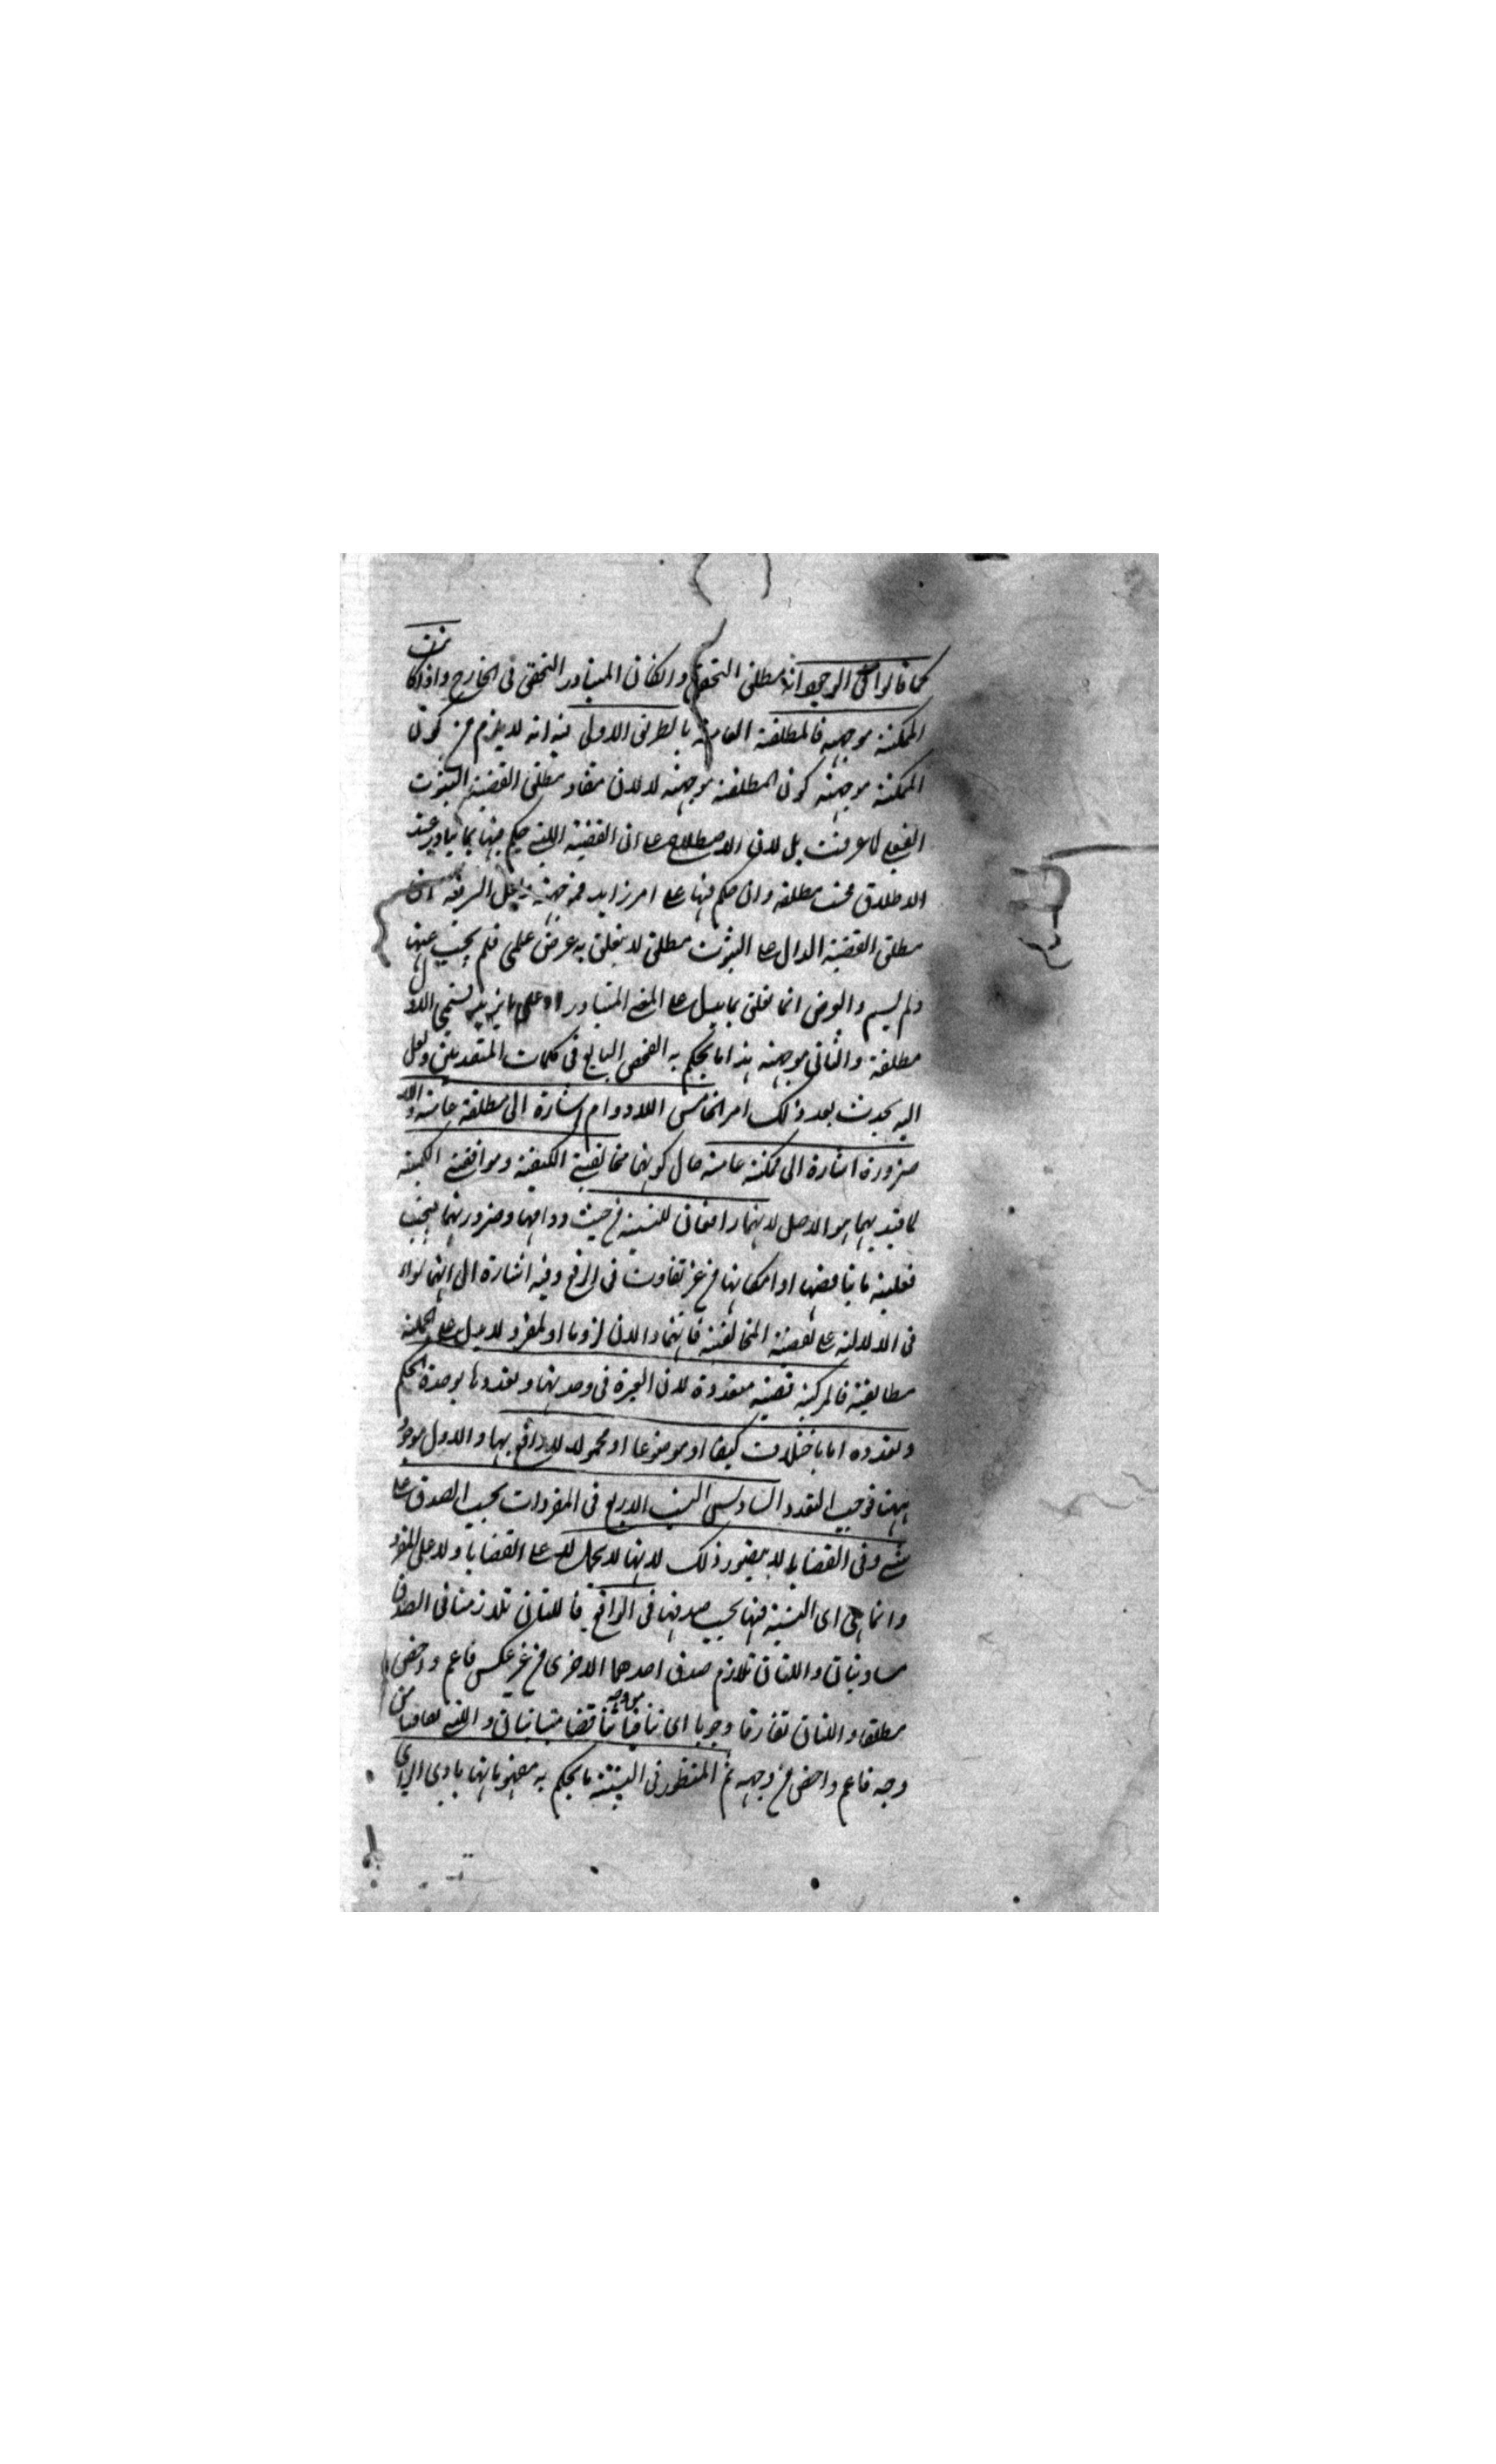 كما قالوا في الوجود انه مطلق التحقق وان كان المتبادر التحقق في الخارج واذا كانت
الممكنة موجهة فالمطلقة العامة بالطريق الاولى فيه انه لا يلزم من كون
الممكنة موجهة كون المطلقة موجهة لا لان مفاد مطلق القضية الثبوت
الفعلي كما عرفت بل لان الاصطلاح على ان القضية التي حكم فيها بما يتبادر عند
الاطلاق مطلقة وان حكم فيها على امر زايد فموجهة ولعل السر فيه ان
مطلق القضية الدال على الثبوت مطلق لا يتعلق به غرض علمي فلم يبحث عنها
ولم يسم والغرض انما تعلق بما يدل على المعنى المتبادر او على ما يزيد فسمي الاول
مطلقة والثاني موجهة هذا ما يحكم به الفحص البالغ في كلمات المتقدمين ولعل
الله يحدث بعد ذلك امرا الخامس اللادوام اشارة الى مطلقة عامة واللا
ضرورة اشارة الى ممكنة عامة حال كونهما مخالفتي الكيفية وموافقتي الكمية
لما قيد بهما هو الاصل لانهما رافعان للنسبة من حيث دوامها وضرورتها فيجب
فعلية ما يناقضها او امكانها من غير تفاوت في الرفع وفيه اشارة الى انهما سواء
في الدلالة على القضية المخالفة فانهما دالان لزوما اذ المفرد لا يدل على الجملة
مطابقة فالمركبة قضية متعددة لان العبرة في وحدتها وتعددها بوحدة الحكم
وتعدده اما باختلافه كيفا او موضوعا او محمولا لا رابع بها والاول موجود
ههنا فوجب التعدد السادس النسب الاربع في المفردات بحسب الصدق على
شيء وفي القضايا لا يتصور ذلك لانها لا تحمل لا على القضايا ولا على المفرد
وانما هي اي النسبة فيها بحسب صدقها في الواقع فاللتان تلازمتا في الصدق
متساويتان واللتان تلازم صدق احدهما الاخرى من غير عكس فاعم واخص
مطلقا واللتان تفارقتا وجوبا اي تنافيا تناقضا متباينتان واللتي تفارقتا من
وجه فاعم واخص من وجه ثم المنظور في النسبة ما يحكم به مفهوماتها بادي الراي